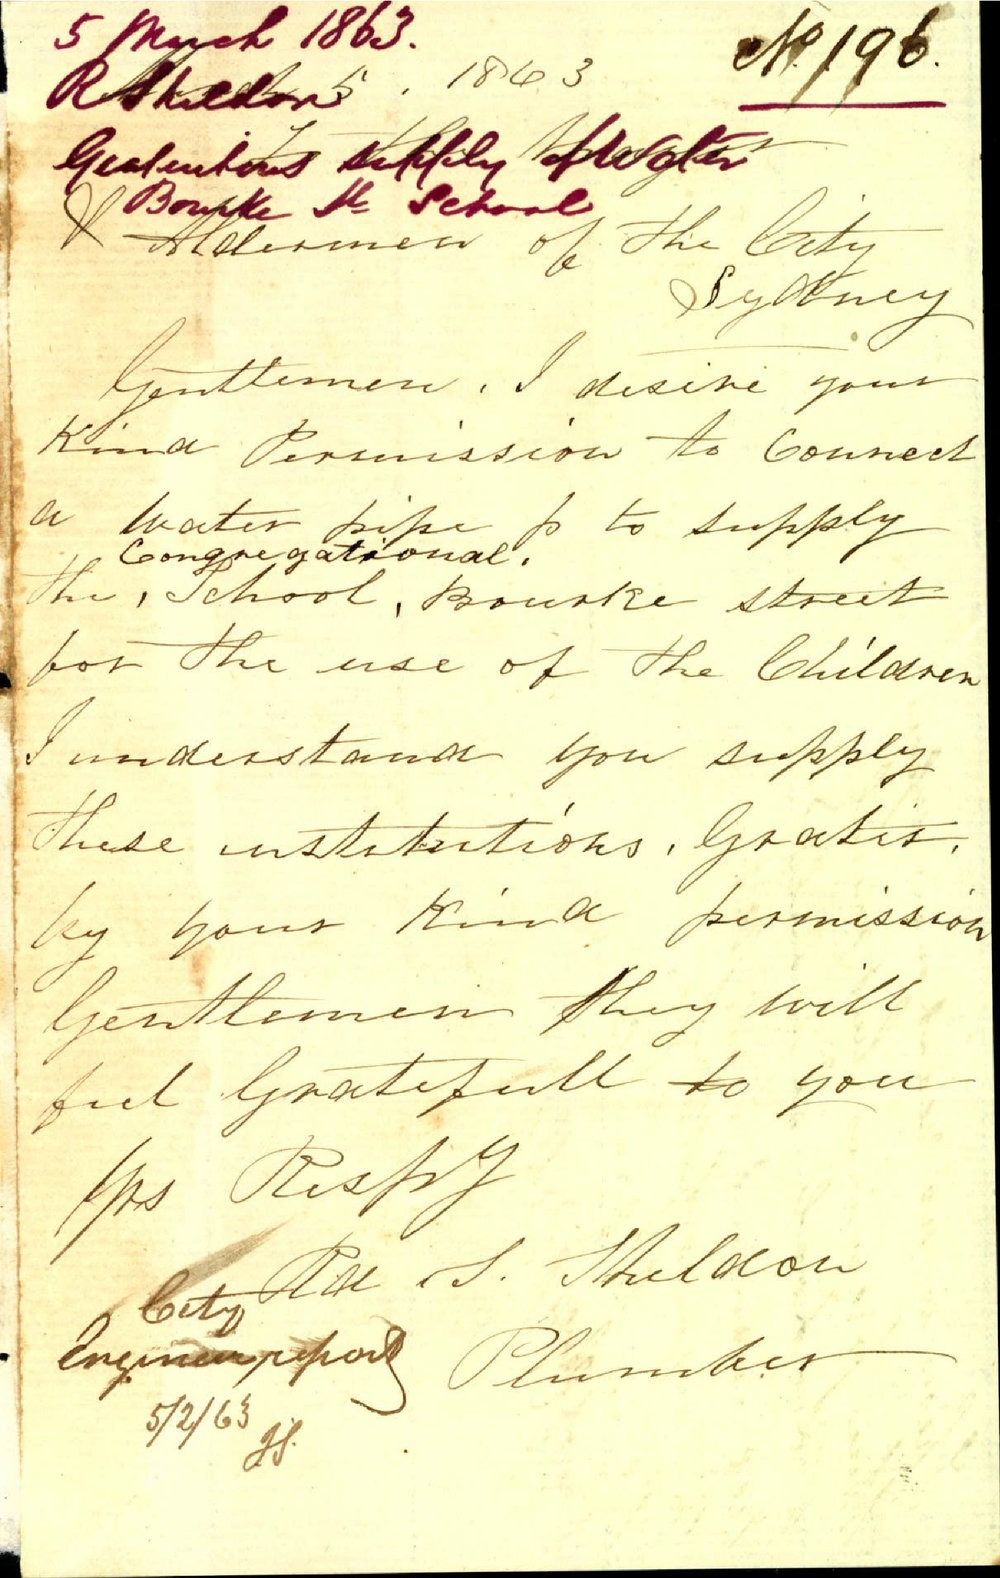 5 March 1863.
No. 196.
R Sheldon
5 . 1863
Gratuitous supply of Water
Bourke St School
& Aldermen of the City
Sydney
Gentlemen . I desire your
Kind Permission to Connect
a water pipe p to supply
Congregational .
the , School , Bourke street
for the use of the Children
I understand you supply
these institutions , Gratis .
by your Kind permission
Gentlemen they will
feel Gratefull to you
Yrs Respy
Rd S. Sheldon
Plumber
City
Engineer, report
5/2/63